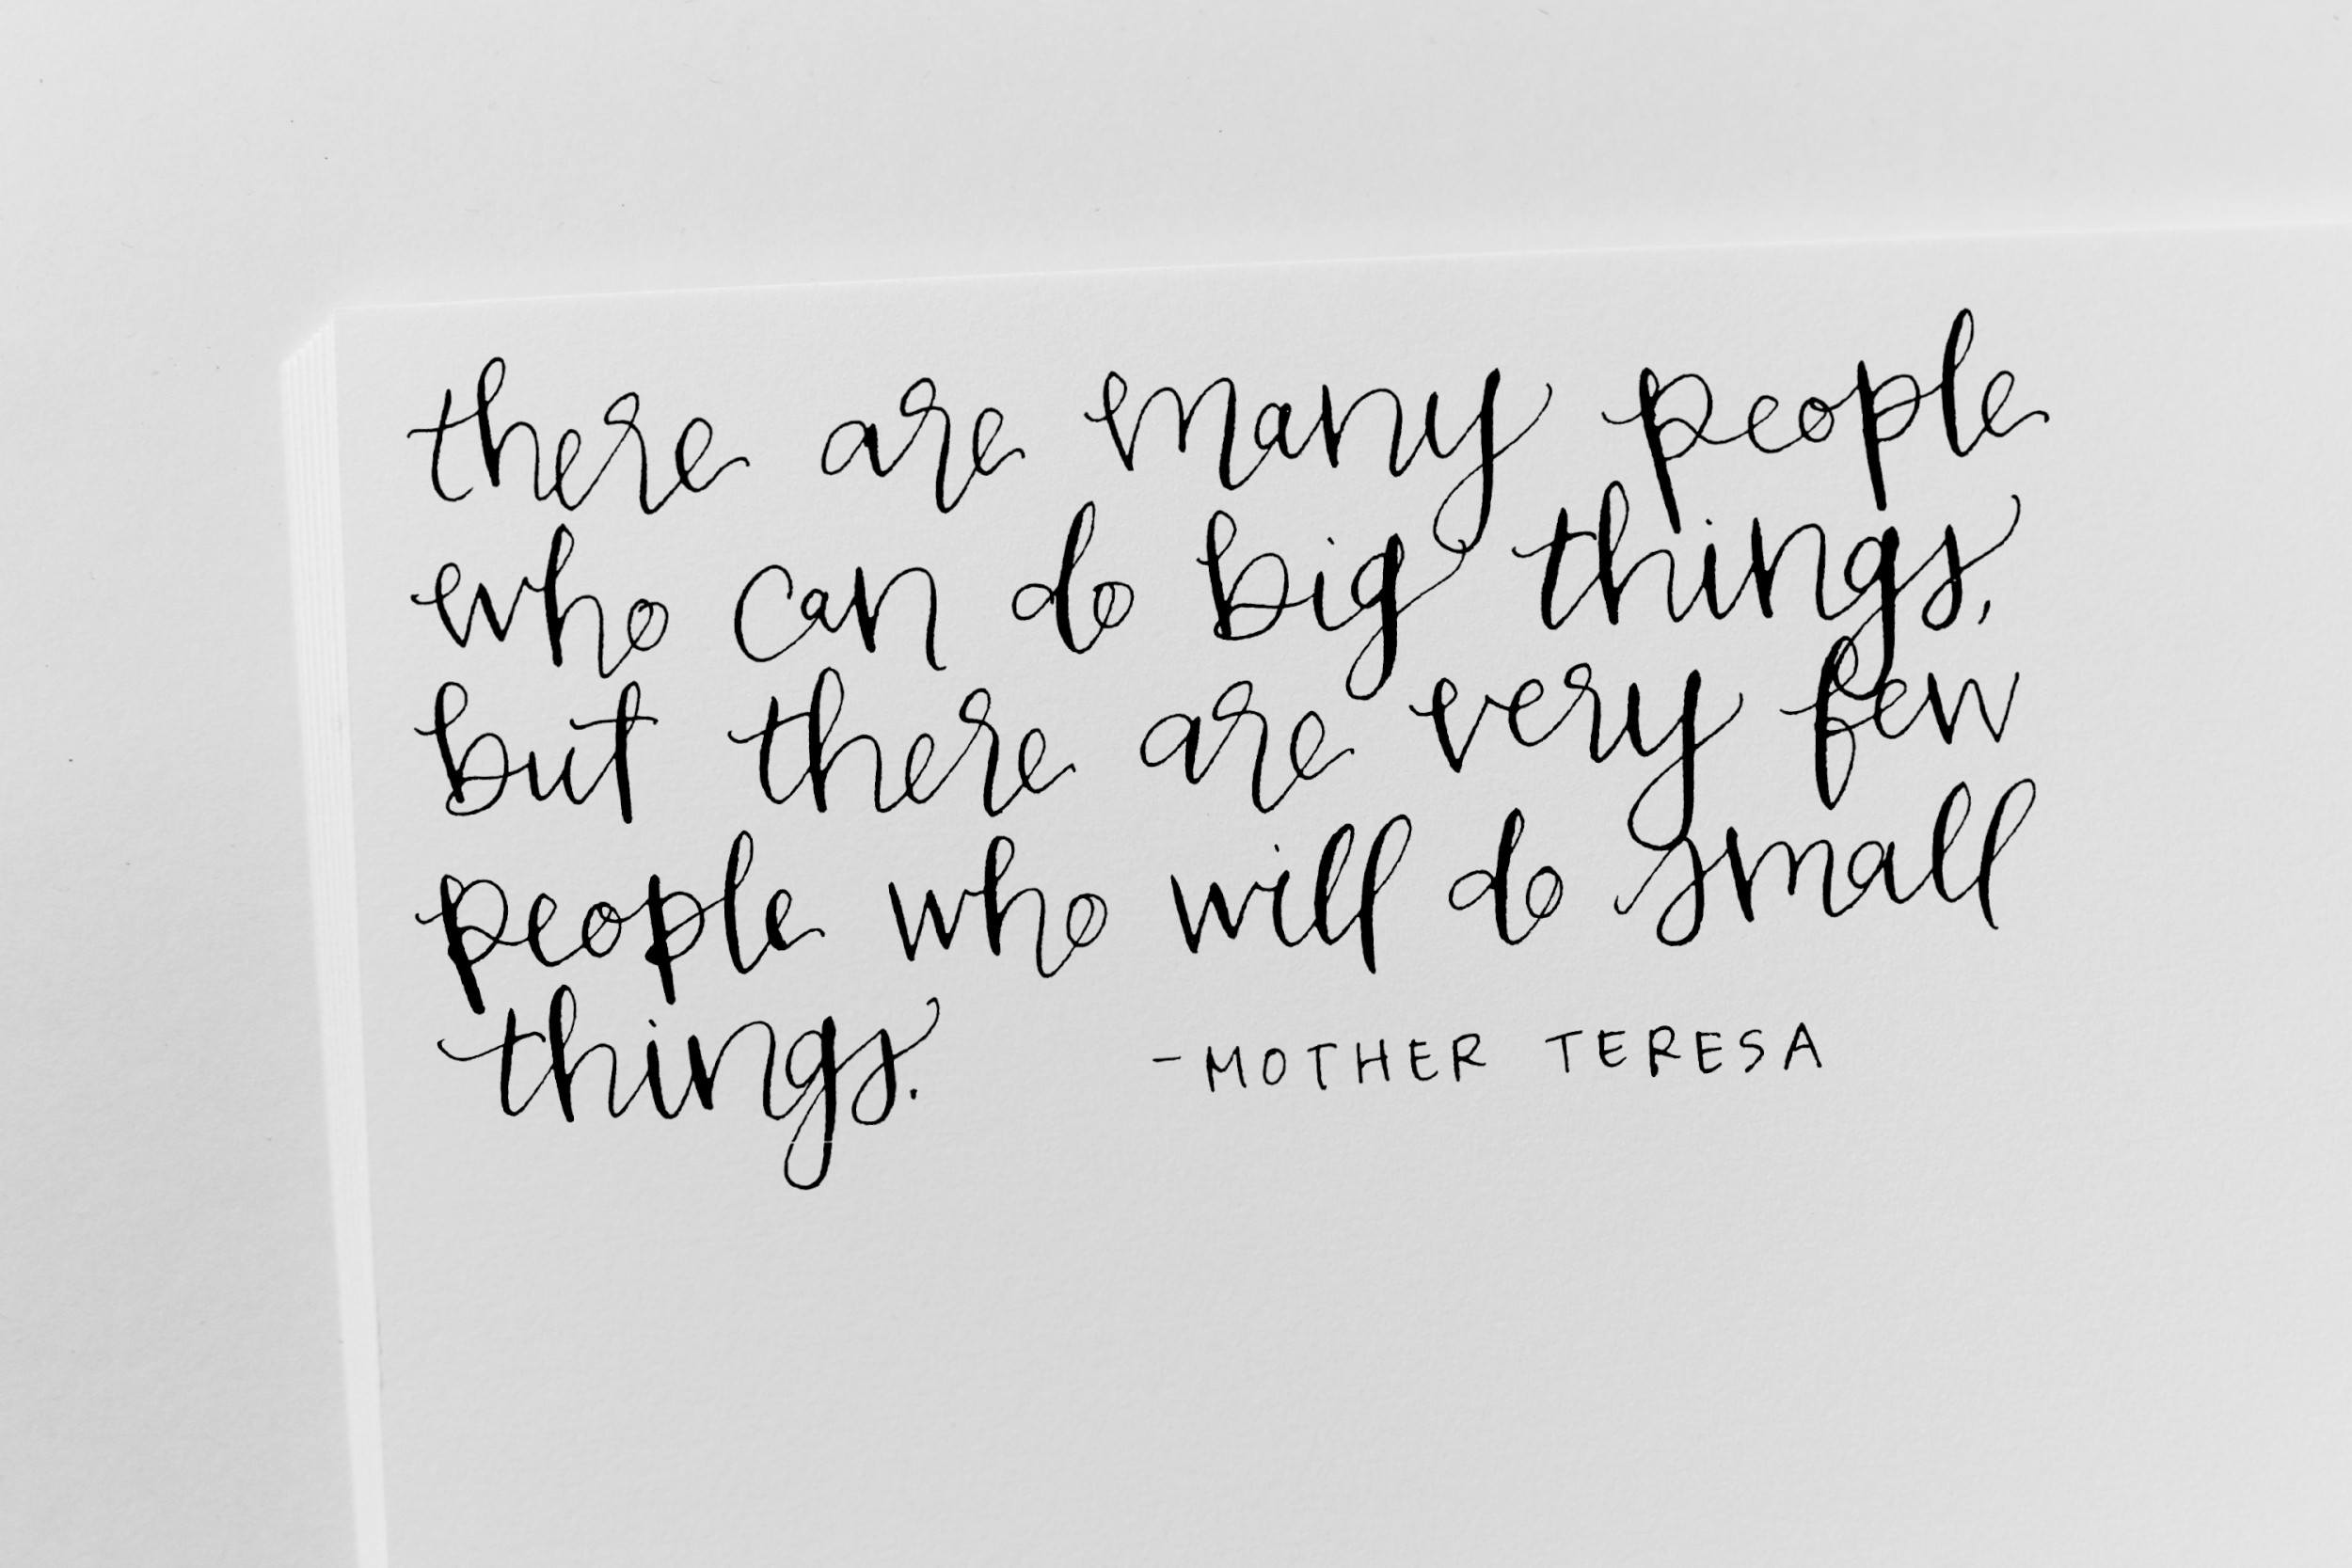 there are many people
who can do big things,
but there are very few
people who will do small
things.
-MOTHER TERESA